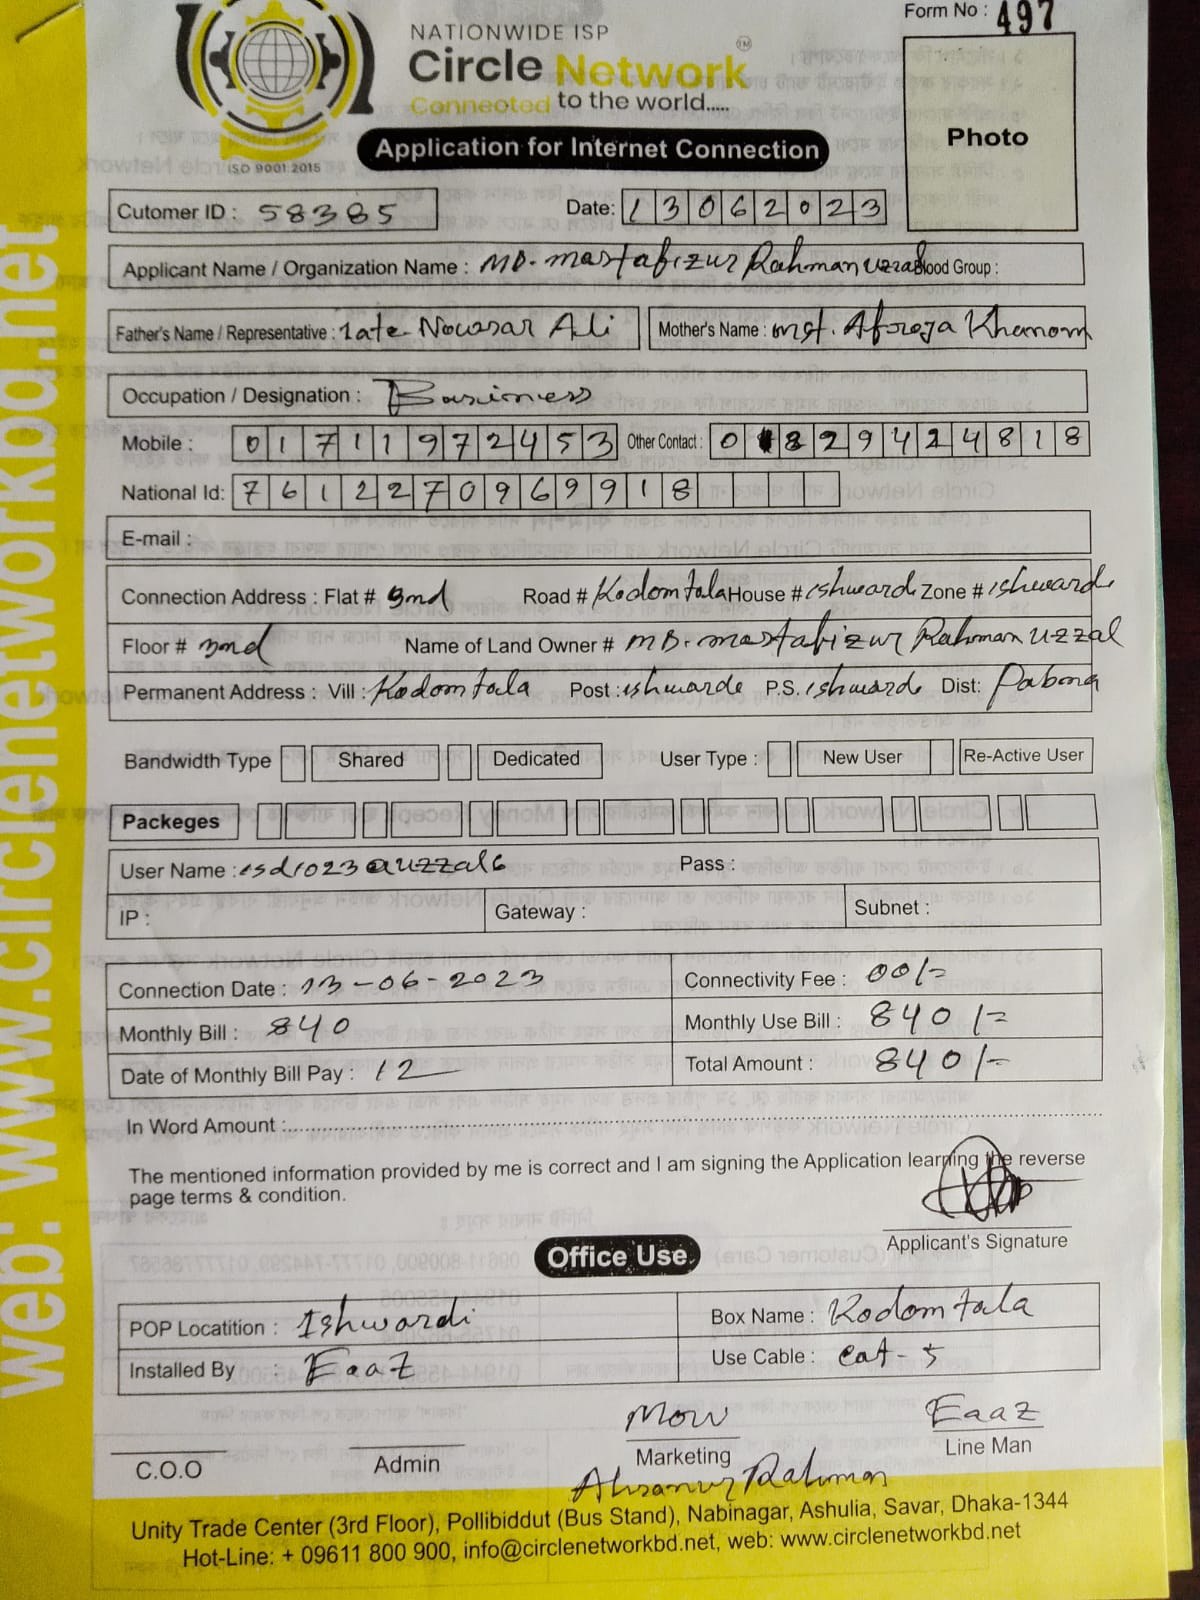 Form No : 497
NATIONWIDE ISP
Circle Network TM
Connected to the world.....
ISO 9001:2015
Application for Internet Connection
Photo
web: www.circlenetworkbd.net
Cutomer ID : 58385 Date: 13062023
Applicant Name / Organization Name : MD. mostafizur Rahman uzzal Blood Group :
Father's Name / Representative : late Nowsar Ali Mother's Name : mst. Afroja Khanom
Occupation / Designation : Business
Mobile : 01711972453 Other Contact : 01829424818
National Id: 7612270969918
E-mail :
Connection Address : Flat # 3nd Road # Kodomtala House # ishwardi Zone # ishwarde
Floor # 3nd Name of Land Owner # MD. mostafizur Rahman uzzal
Permanent Address : Vill : Kodomtala Post : ishwarde P.S. ishwarde Dist: Pabna
Bandwidth Type Shared Dedicated User Type : New User Re-Active User
Packeges
User Name : isd1023@uzzal6 Pass :
IP : Gateway : Subnet :
Connection Date : 13-06-2023 Connectivity Fee : 00/-
Monthly Bill : 840 Monthly Use Bill : 840/=
Date of Monthly Bill Pay : 12 Total Amount : 840/-
In Word Amount :
The mentioned information provided by me is correct and I am signing the Application learning the reverse
page terms & condition.
Applicant's Signature
Office Use
POP Locatition : Ishwardi Box Name : Kodomtala
Installed By : EaaZ Use Cable : cat-5
Mow EaaZ
C.O.O Admin Marketing Line Man
Ahsanur Rahman
Unity Trade Center (3rd Floor), Pollibiddut (Bus Stand), Nabinagar, Ashulia, Savar, Dhaka-1344
Hot-Line: + 09611 800 900, info@circlenetworkbd.net, web: www.circlenetworkbd.net